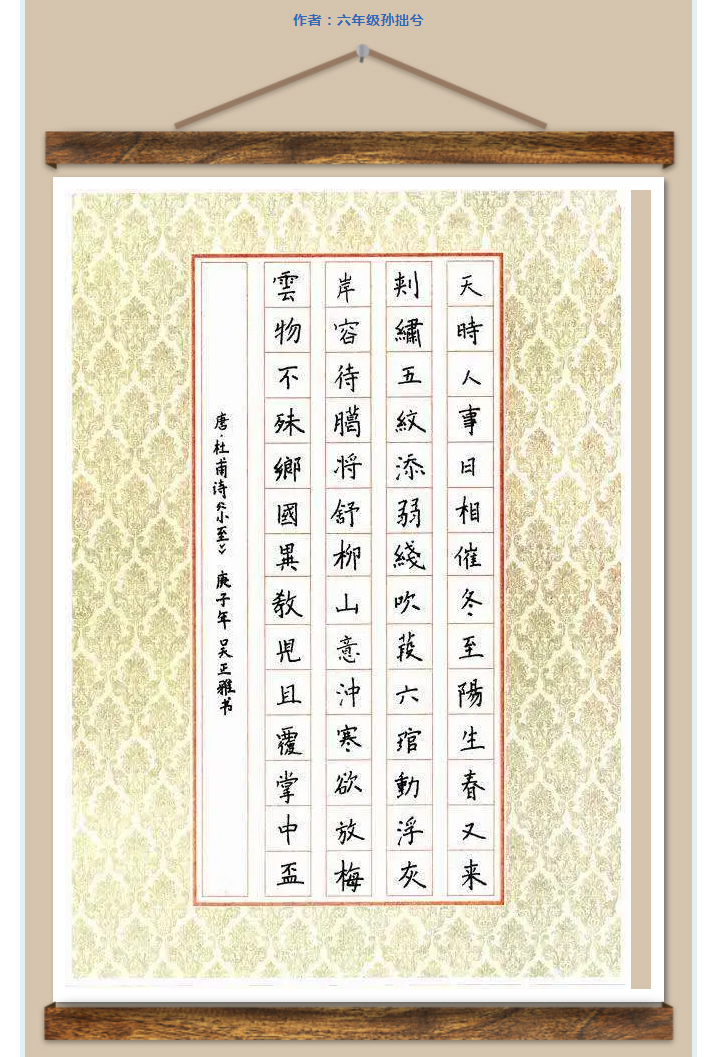 作者：六年级孙拙兮
天時人事日相催冬至陽生春又来
刺繡五紋添弱綫吹葭六琯動浮灰
岸容待臈将舒柳山意沖寒欲放梅
雲物不殊鄉國異教児且覆掌中盃
唐·杜甫诗《小至》 庚子年 吴正雅书